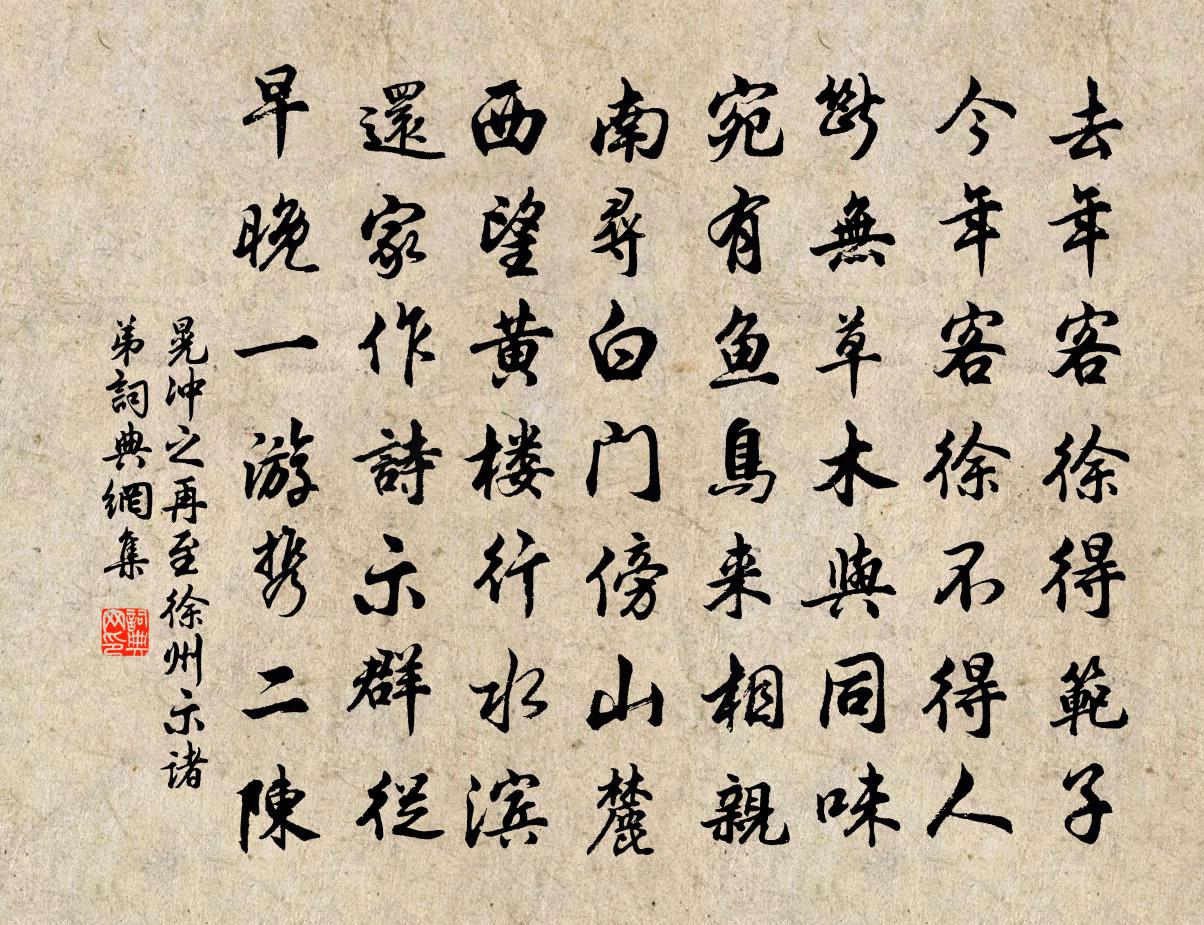 去年客徐得範子
今年客徐不得人
斷無草木與同味
宛有魚鳥来相親
南尋白门傍山麓
西望黄楼行水滨
還家作詩示群從
早晚一游携二陳
晁冲之再至徐州示诸
弟詞典網集
詞典网印